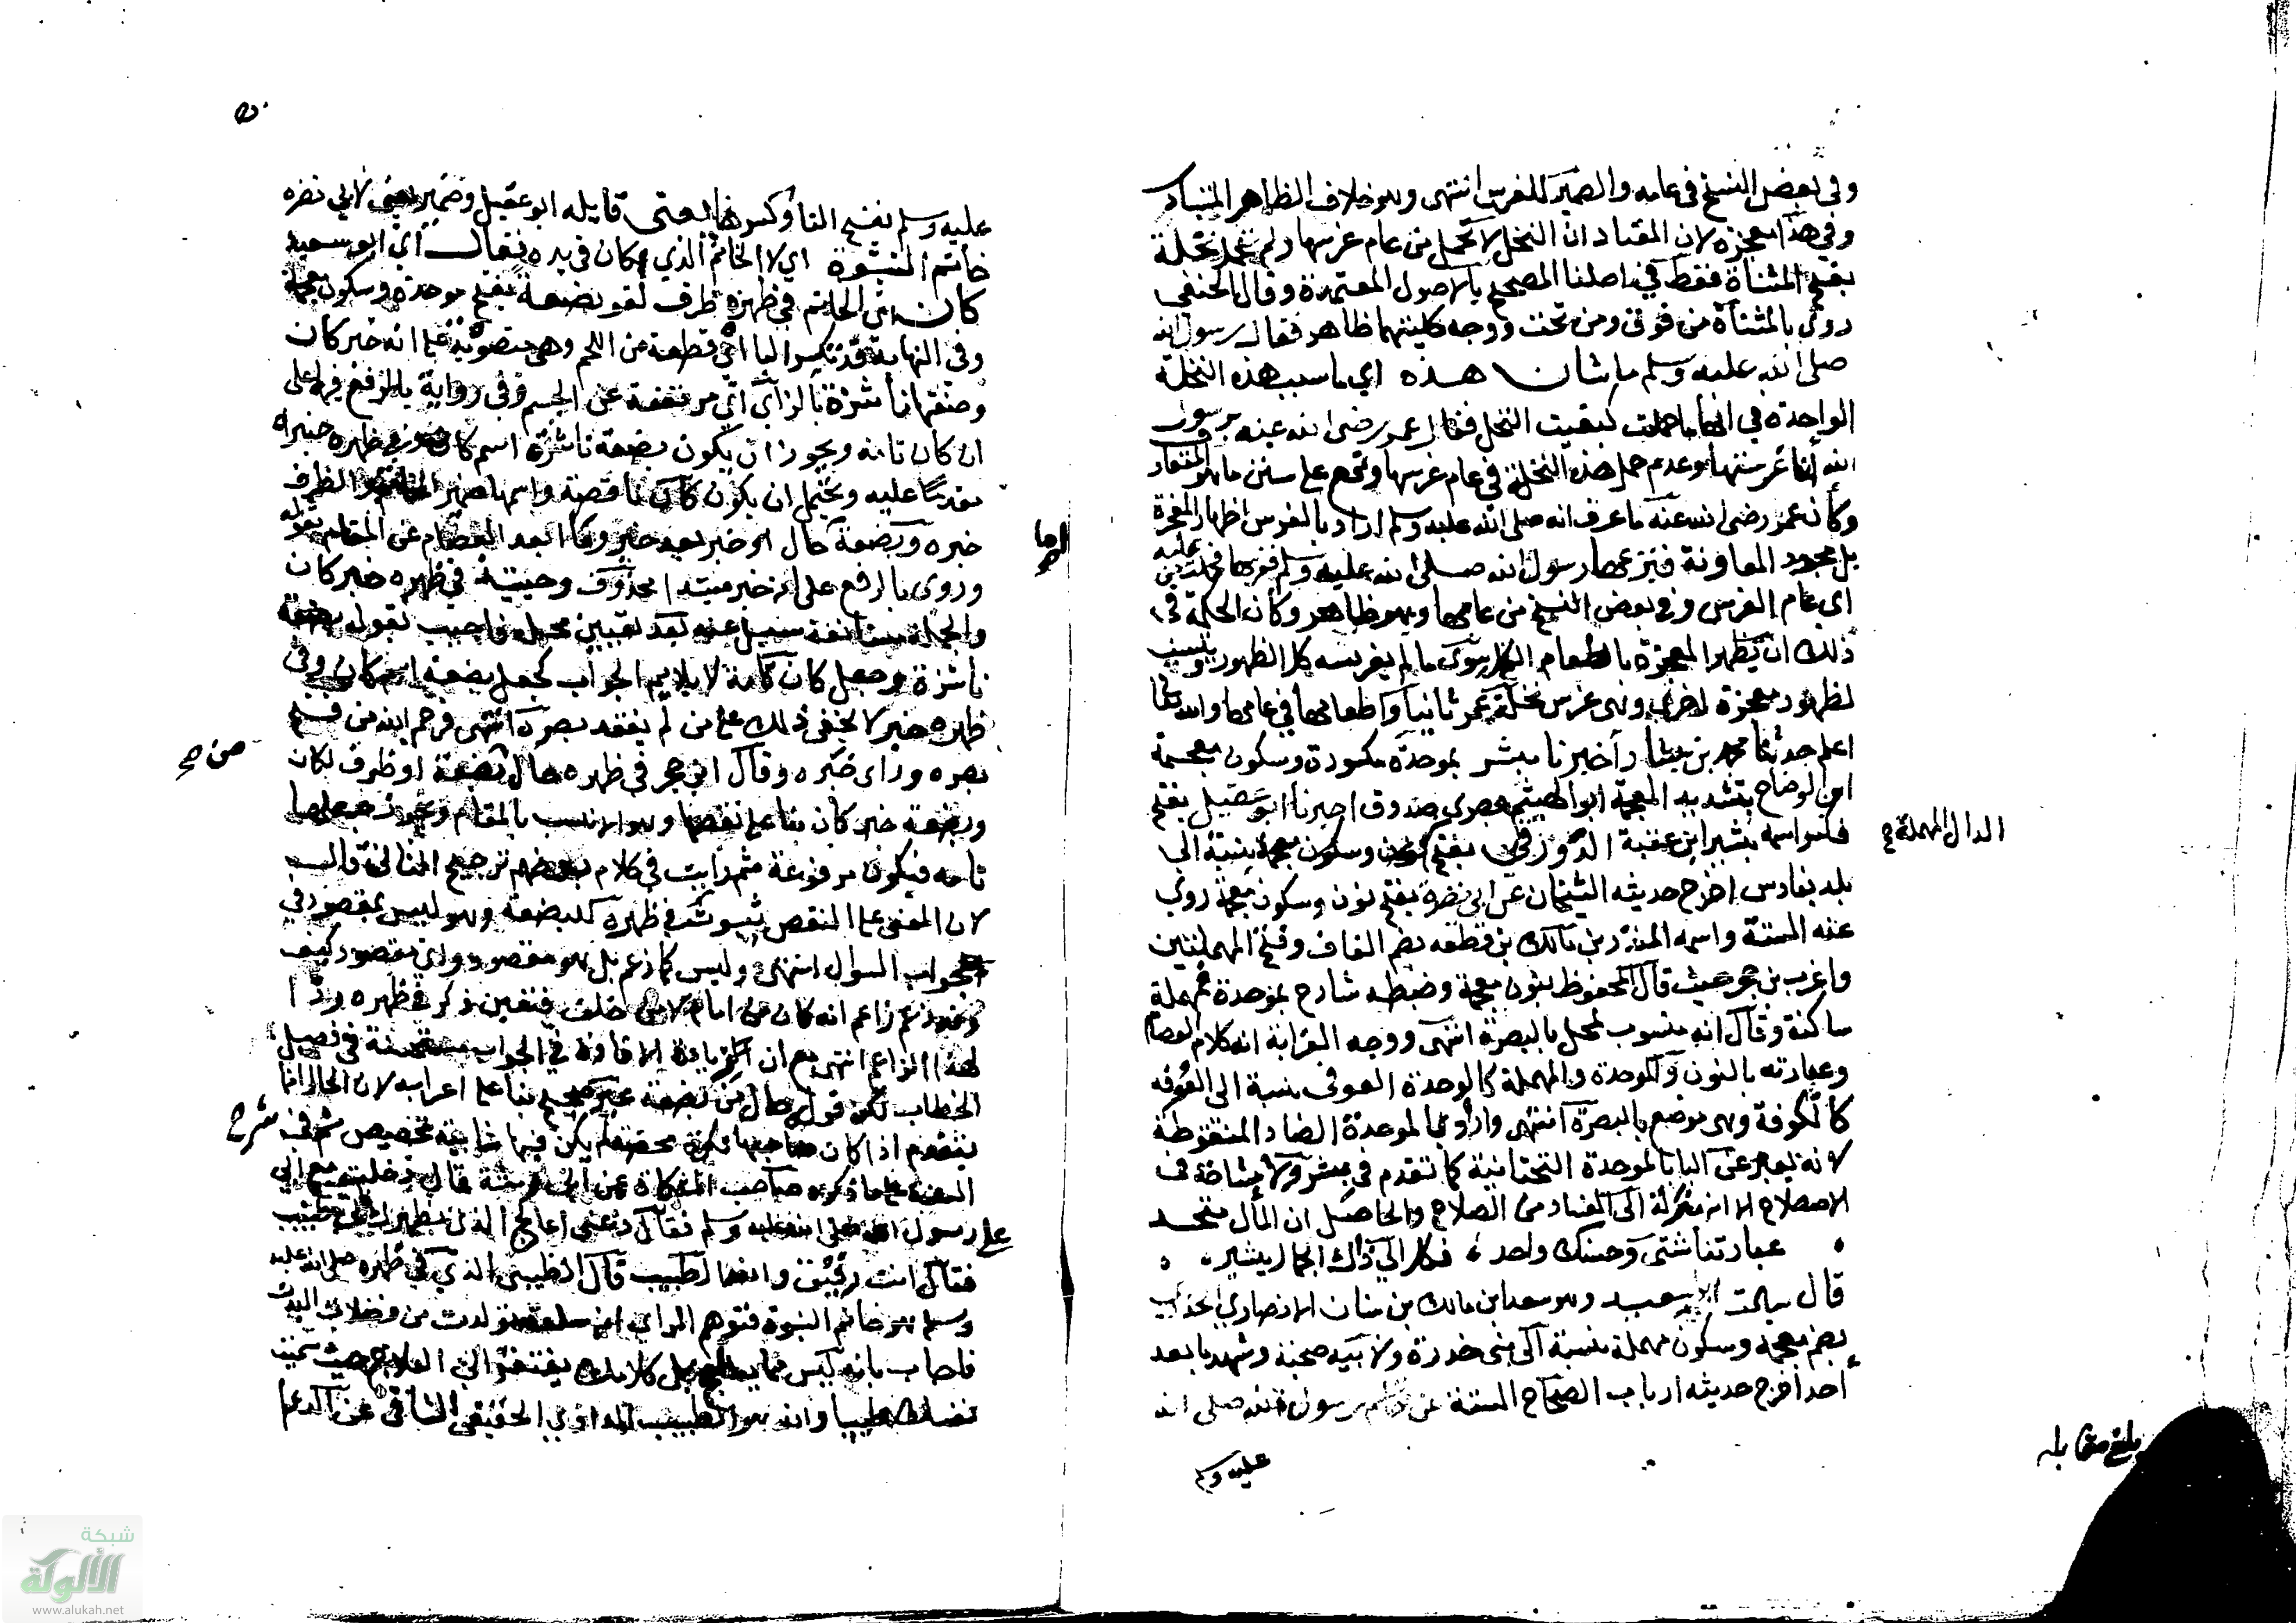 وفي بعض النسخ في عامه والضمير للغرس انتهى وهو خلاف الظاهر المتبادر
وفي هذا معجزة لان المعتاد ان النخل لا تحمل من عام غرسها ولم تحمل نخلة
بفتح المثناة فقط في اصلنا المصحح بالاصول المعتمدة وقال الحنفي
روي بالمثناة من فوق ومن تحت ووجه كليتهما ظاهر فقال رسول الله
صلى الله عليه وسلم ما شان هذه اي ما سبب هذه النخلة
الواحدة في انها ما حملت كبقيت النخل فقال عمر رضي الله عنه يا رسول
الله انا غرستها وعدم حمل هذه النخلة في عام غرسها وقع على سنن ما هو المتعارف
وكأن عمر رضي الله عنه ما عرف انه صلى الله عليه وسلم اراد بالغرس اظهار المعجزة
بل مجرد المعاونة فنزعها رسول الله صلى الله عليه وسلم فغرسها فحملت من
اي عام الغرس وفي بعض النسخ من عامها وهو ظاهر وكأن الحكمة في
ذلك ان تظهر المعجزة باطعام الكل سوى ما لم يغرسه كل الظهور
لظهور معجزة اخرى وهي غرس نخلة عمر ثانيا واطعامها في عامها والله تعالى
اعلم حدثنا محمد بن بشار اخبرنا بشر بموحدة مكسورة وسكون معجمة
ابن الوضاح بتشديد المعجمة ابو الهيثم بصري صدوق اخبرنا ابو عقيل بفتح
فكسر واسمه بشير ابن عقبة الدورقي بفتح وسكون نسبة الى
الدال المهملة صح
بلد بفارس اخرج حديثه الشيخان عن ابي نضرة بفتح نون وسكون معجمة روى
عنه الستة واسمه المنذر بن مالك بن قطعه بضم القاف وفتح المهملتين
واغرب بن حجر حيث قال المحفوظ بنون معجمة وضبطه شارح بموحدة فمهملة
ساكنة وقال انه منسوب لمحل بالبصرة انتهى ووجه الغرابة انه كلام العصام
وعبارته بالنون والموحدة والمهملة كالوحدة العوفي نسبة الى العوفه
كالكوفة وهي موضع بالبصرة انتهى واراد بالموحدة الضاد المنقوطة
لانه يعبر عن البا بالموحدة التحتانية كما تقدم في بشر ولا مشاحة في
الاصطلاح الا انه الى الفساد من الصلاح والحاصل ان المآل متحد
عباراتنا شتى وحسنك واحد ، فكل الى ذاك الجمال يشير ،
قال سالت ابا سعيد وهو سعد ابن مالك بن سنان الانصاري الخدري
بضم معجمة وسكون مهملة نسبة الى بني خدرة ولابيه صحبة وشهد ما بعد
احد اخرج حديثه ارباب الصحاح الستة عن خاتم رسول الله صلى الله
عليه وسلم
بلغ مقابله
عليه وسلم بفتح التا وكسرها يعني قايله ابو عقيل وضمير يعني لابي نضره
خاتم النبوة اي لا الخاتم الذي كان في يده فقال اي ابو سعيد
كان اي الخاتم في ظهره ظرف لغو بضعة بفتح موحدة وسكون معجمة
وفي النهاية وقد تكسر البا اي قطعة من اللحم وهي منصوبة على انه خبر كان
وصفتها ناشزة بالزاي اي مرتفعة عن الجسم وفي رواية بالرفع فيها على
ان كان تامة ويجوز ان يكون بضعة ناشزة اسم كان وفي ظهره خبرا
مقدما عليه ويحتمل ان يكون كان ناقصة واسمها ضمير الخاتم والظرف
خبره وبضعة حال او خبر بعد خبر وما ابعد العصام عن المقام بقوله
وروي بالرفع على انه خبر مبتدا محذوف وحينئذ في ظهره خبر كان
والجملة مستانفة سئل عنه بعد تعيين محله فاجيب بقوله بضعة
ناشزة وجعل كان تامة لا يلايم الجواب كجعل بضعة اسم كان وفي
ظهره خبر لا يخفى ذلك على من لم يفقد بصره انتهى فرحم الله من فتح
بصره وراى خبره وقال ابن حجر في ظهره حال بضعة او ظرف لكان
من صح
وبضعة خبر كان بنا على نقصها وهو الانسب بالمقام ويجوز جعلها
تامه فيكون مرفوعة ثم رايت في كلام بعضهم ترجيح الثاني قال
لان المعنى على النقص ثبوت في ظهره كالبضعة وهو ليس بمقصود في
جواب السوال انتهى وليس كما زعم بل هو مقصود واي مقصود كيف
وقد زعم زاعم انه كان من امام لا من خلف فتعين ذكر في ظهره ردا
لهذا الزاعم انتهى مع ان زيادة الافادة في الجواب مستحسنة في فصيل
الخطاب لكن قوله حال من بضعة غير صحيح بنا على اعرابه لان الحال انما
يتقدم اذا كان صاحبها نكرة محضة لم يكن فيها شايبة تخصيص ثم في شرح
السنة على ما ذكره صاحب المشكاة عن ابي رمثة قال دخلت مع ابي
على رسول الله صلى الله عليه وسلم فقال دعني اعالج الذي بظهرك فاني طبيب
فقال انت رفيق والله الطبيب قال الطيبي الذي في ظهره صلى الله عليه
وسلم هو خاتم النبوة فتوهم الراي انه سلعة تولدت من فضلات البدن
فاجاب بانه ليس مما يعالج بل كلامك يفتقر الى العلاج حيث سميت
نفسك طبيبا والله هو الطبيب المداوي الحقيقي الشافي عن الداء